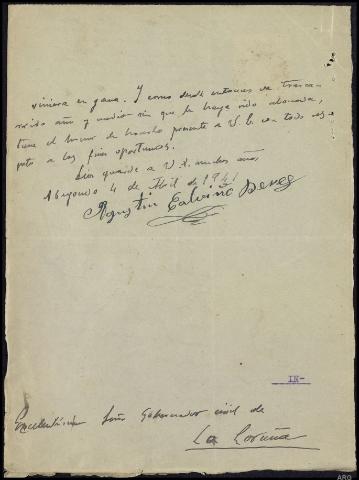 viniera en gana. Y como desde entonces ha trascu-
rrido año y medio sin que le haya sido abonada,
tiene el honor de hacerlo presente a V.E. con todo res-
peto a los fines oportunos.
Dios guarde a V.E. muchos años,
Abegondo 4 de Abril de 1941
Agustin Calviño
IN-
Excelentísimo Señor Gobernador civil de
La Coruña
ARG